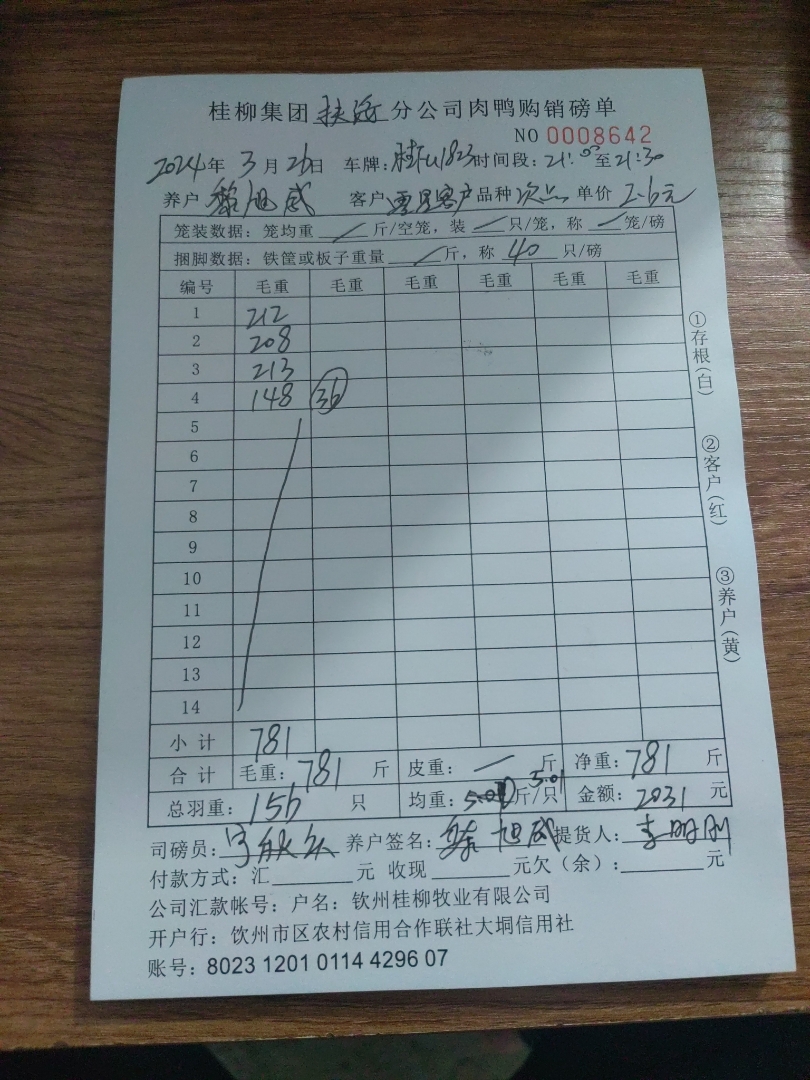 桂柳集团 扶绥 分公司肉鸭购销磅单
NO 0008642
2024年 3月 26日 车牌：桂 1823 时间段：21:05至21:30
养户 黎旭威 客户 零星客户 品种 次品 单价 2.6元
笼装数据：笼均重 / 斤/空笼，装 / 只/笼，称 / 笼/磅
捆脚数据：铁筐或板子重量 / 斤，称 40 只/磅
编号 毛重 毛重 毛重 毛重 毛重 毛重
1 212
2 208
3 213
4 148 36
5
6
7
8
9
10
11
12
13
14
小计 781
合计 毛重：781 斤 皮重：— 斤 净重：781 斤
总羽重：156 只 均重：5.01 斤/只 金额：2031 元
司磅员： 养户签名：黎旭威 提货人：李明刚
付款方式：汇 元 收现 元欠（余）： 元
公司汇款帐号：户名：钦州桂柳牧业有限公司
开户行：钦州市区农村信用合作联社大垌信用社
账号：8023 1201 0114 4296 07
①存根（白）
②客户（红）
③养户（黄）